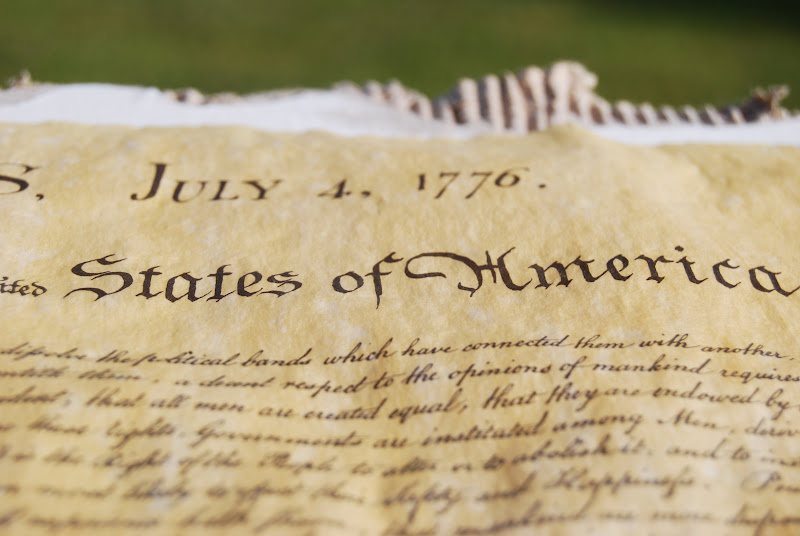 S, JULY 4, 1776.
ited States of America
dissolve the political bands which have connected them with another,
a decent respect to the opinions of mankind requires
that all men are created equal, that they are endowed by
these rights, Governments are instituted among Men, deriv
the Right of the People to alter or to abolish it, and to in
Safety and Happiness.